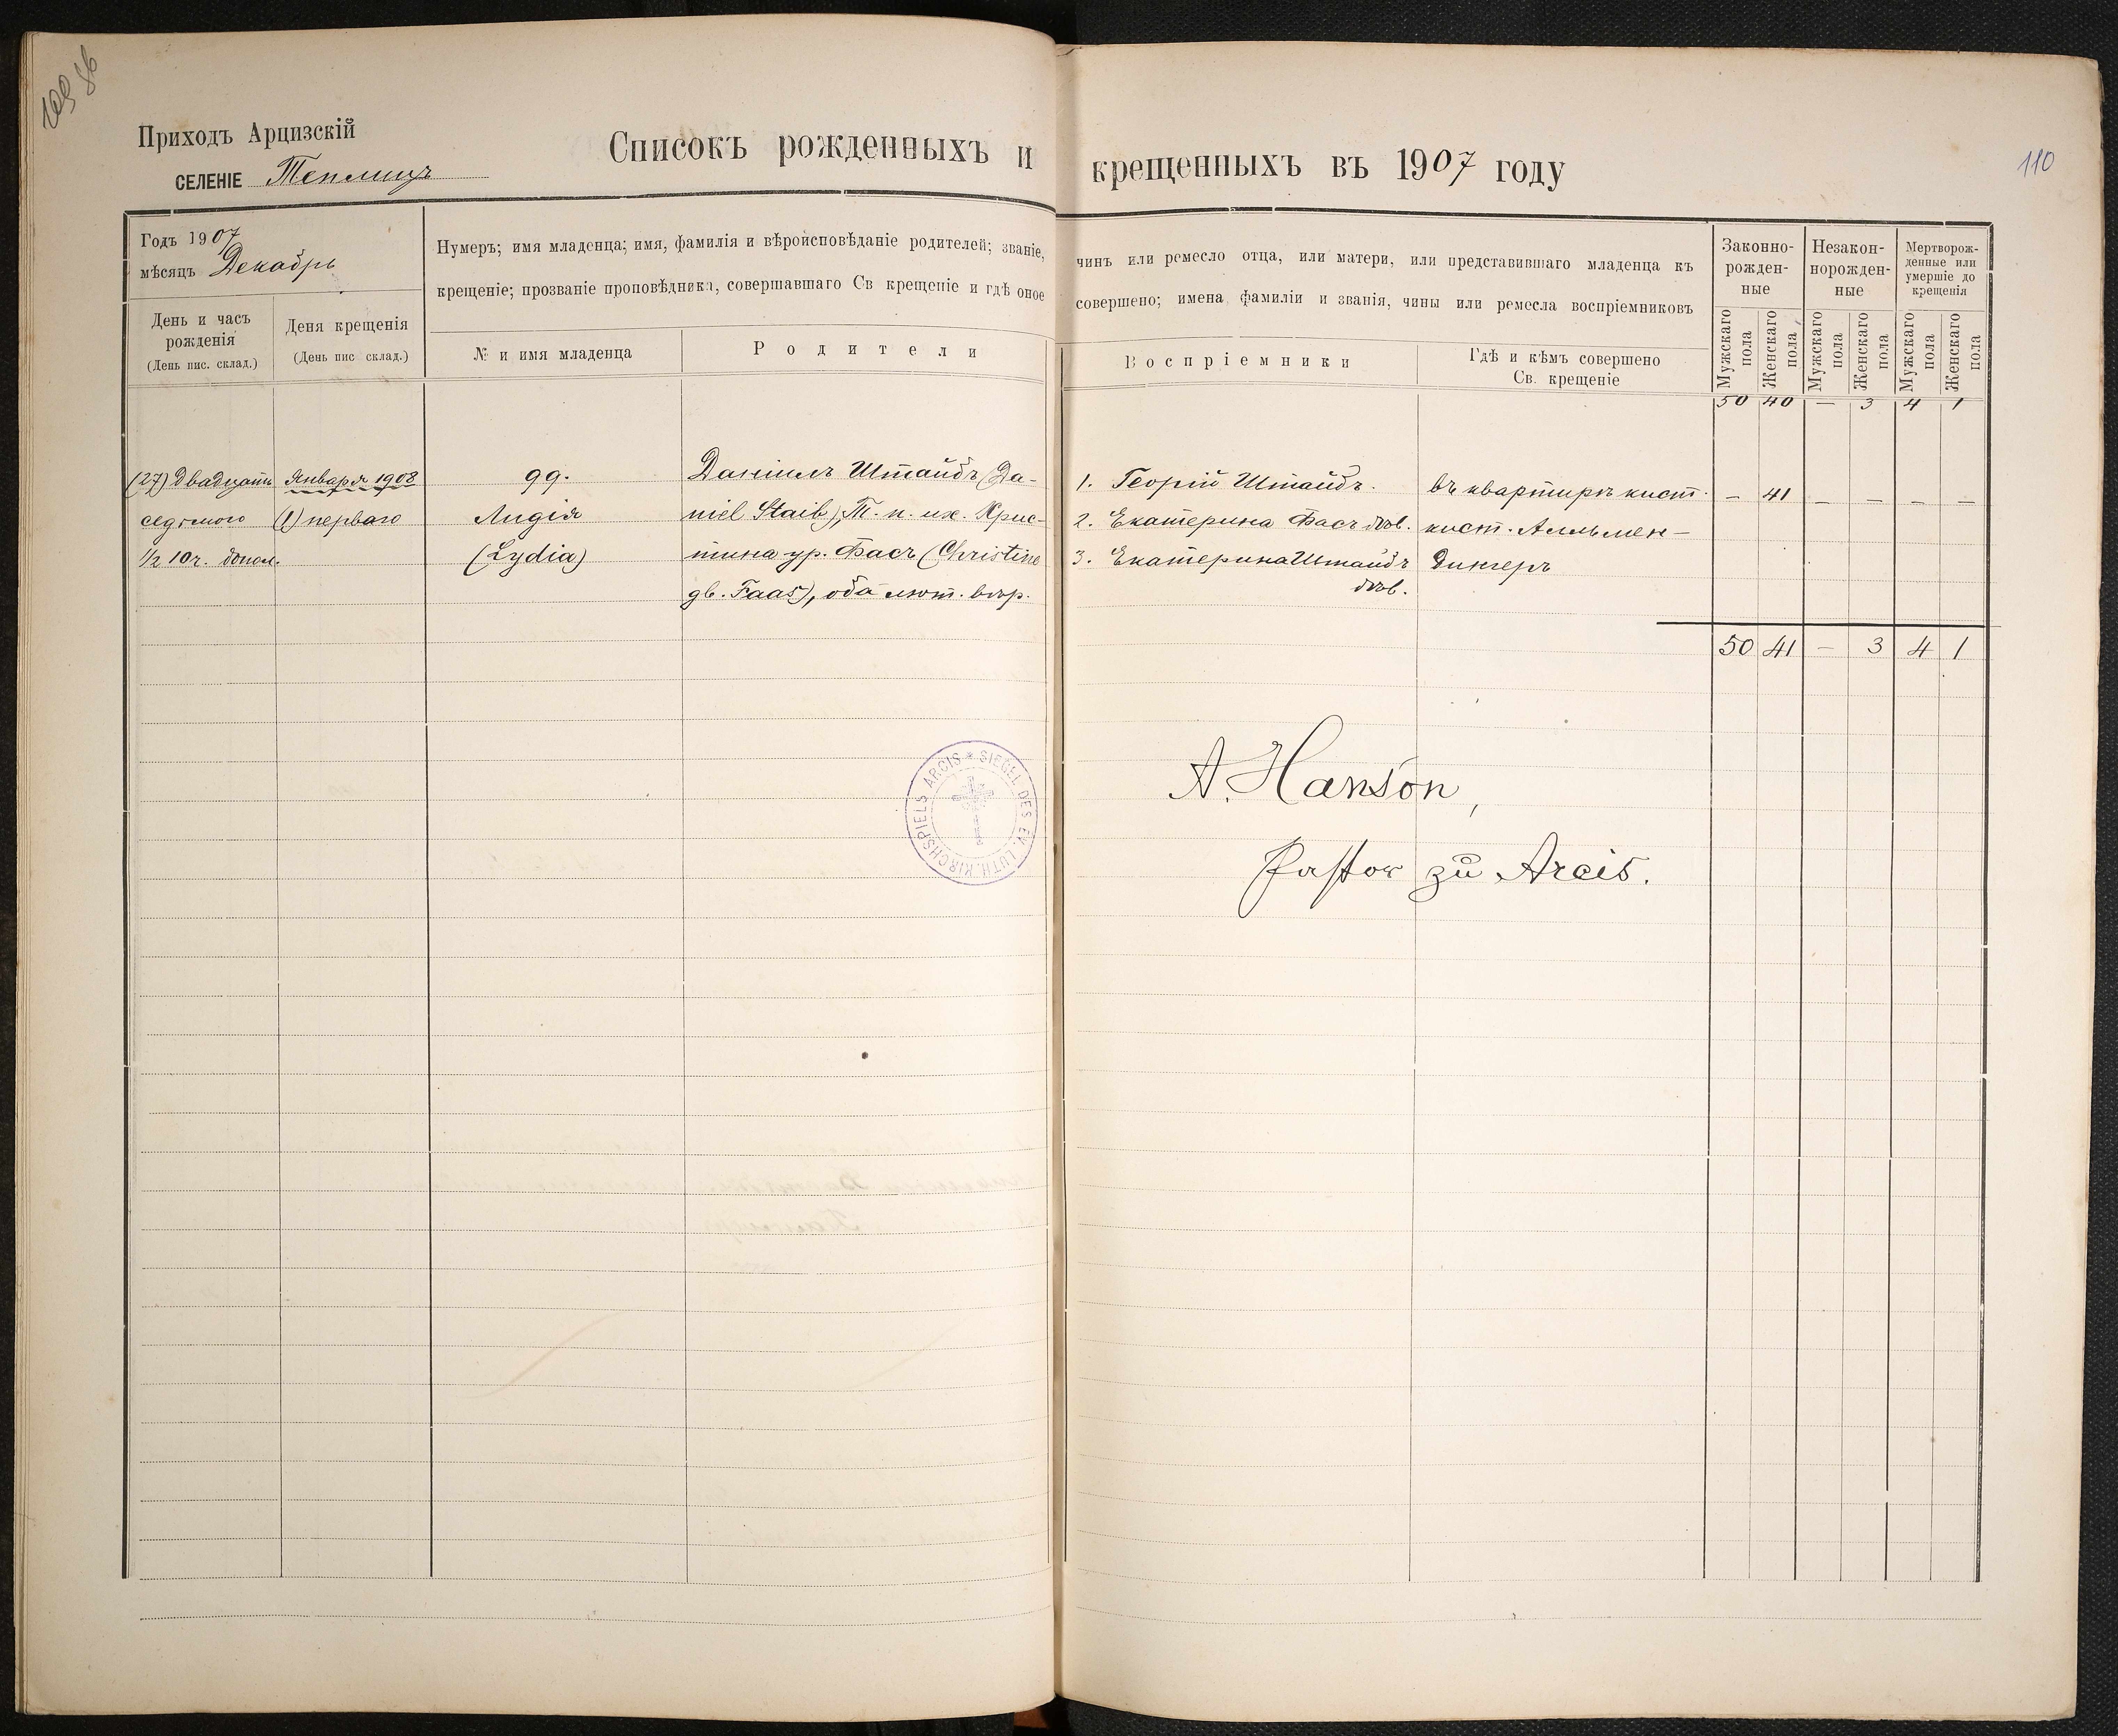 109 86
Приходъ Арцизскій
СЕЛЕНІЕ Теплицъ
Списокъ рожденныхъ и крещенныхъ въ 1907 году
110
Годъ 1907
мѣсяцъ Декабрь
Нумеръ; имя младенца; имя, фамилія и вѣроисповѣданіе родителей; званіе, чинъ или ремесло отца, или матери, или представившаго младенца къ
крещеніе; прозваніе проповѣдника, совершавшаго Св крещеніе и гдѣ оное совершено; имена, фамиліи и званія, чины или ремесла воспріемниковъ
День и часъ
рожденія
(День пис. склад.)
Деня крещенія
(День пис склад.)
№ и имя младенца
Родители
Воспріемники
Гдѣ и кѣмъ совершено
Св. крещеніе
Законно-
рожден-
ные
Незакон-
норожден-
ные
Мертворож-
денные или
умершіе до
крещенія
Мужскаго
пола
Женскаго
пола
Мужскаго
пола
Женскаго
пола
Мужскаго
пола
Женскаго
пола
50 40 — 3 4 1
(27) Двадцать
седьмого
1/2 10 ч. попол.
Января 1908
(1) перваго
99.
Лидія
(Lydia)
Даніилъ Штайбъ (Da-
niel Staib), Т. п. их. Крис-
тина ур. Фасъ (Christine
gb. Faas), оба лют. вѣр.
1. Георгій Штайбъ.
2. Екатерина Фасъ дѣв.
3. Екатерина Штайбъ
дѣв.
въ квартирѣ кист.
кист. Алльмен-
дингеръ
— 41 — — — —
50 41 — 3 4 1
SIEGEL DES EV. LUTH. KIRCHSPIELS ARCIS *
A. Hanson,
Pastor zu Arcis.